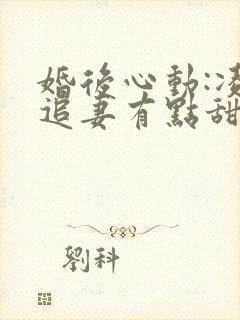 婚後心動:凌
追妻有點甜
劉科